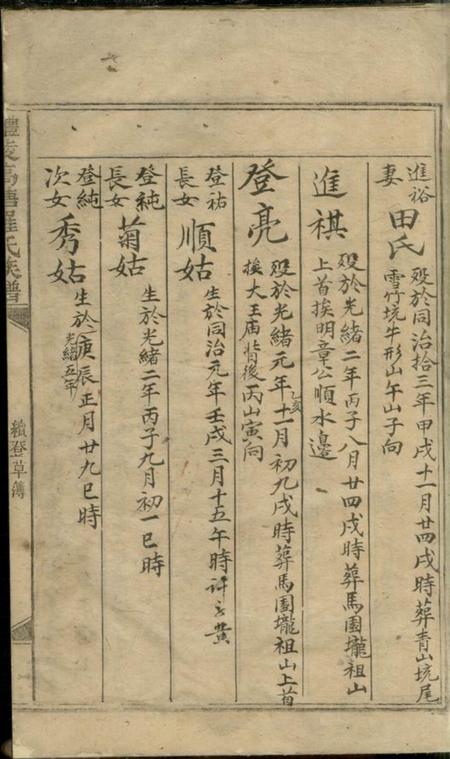 進裕妻田氏歿於同治拾三年甲戌十一月廿四戌時葬青山坑尾
雪竹坑牛形山午山子向
進祺歿於光緒二年丙子八月廿四戌時葬馬園壠祖山
上首挨明章公順水邊
登亮歿於光緒元年乙亥十一月初九戌時葬馬園壠祖山上首
挨大王庙背後丙山寅向
登祐長女順姑生於同治元年壬戌三月十五午時許黃
登純長女菊姑生於光緒二年丙子九月初一巳時
登純次女秀姑生於光緒五年庚辰正月廿九巳時
氏族譜
續登草簿